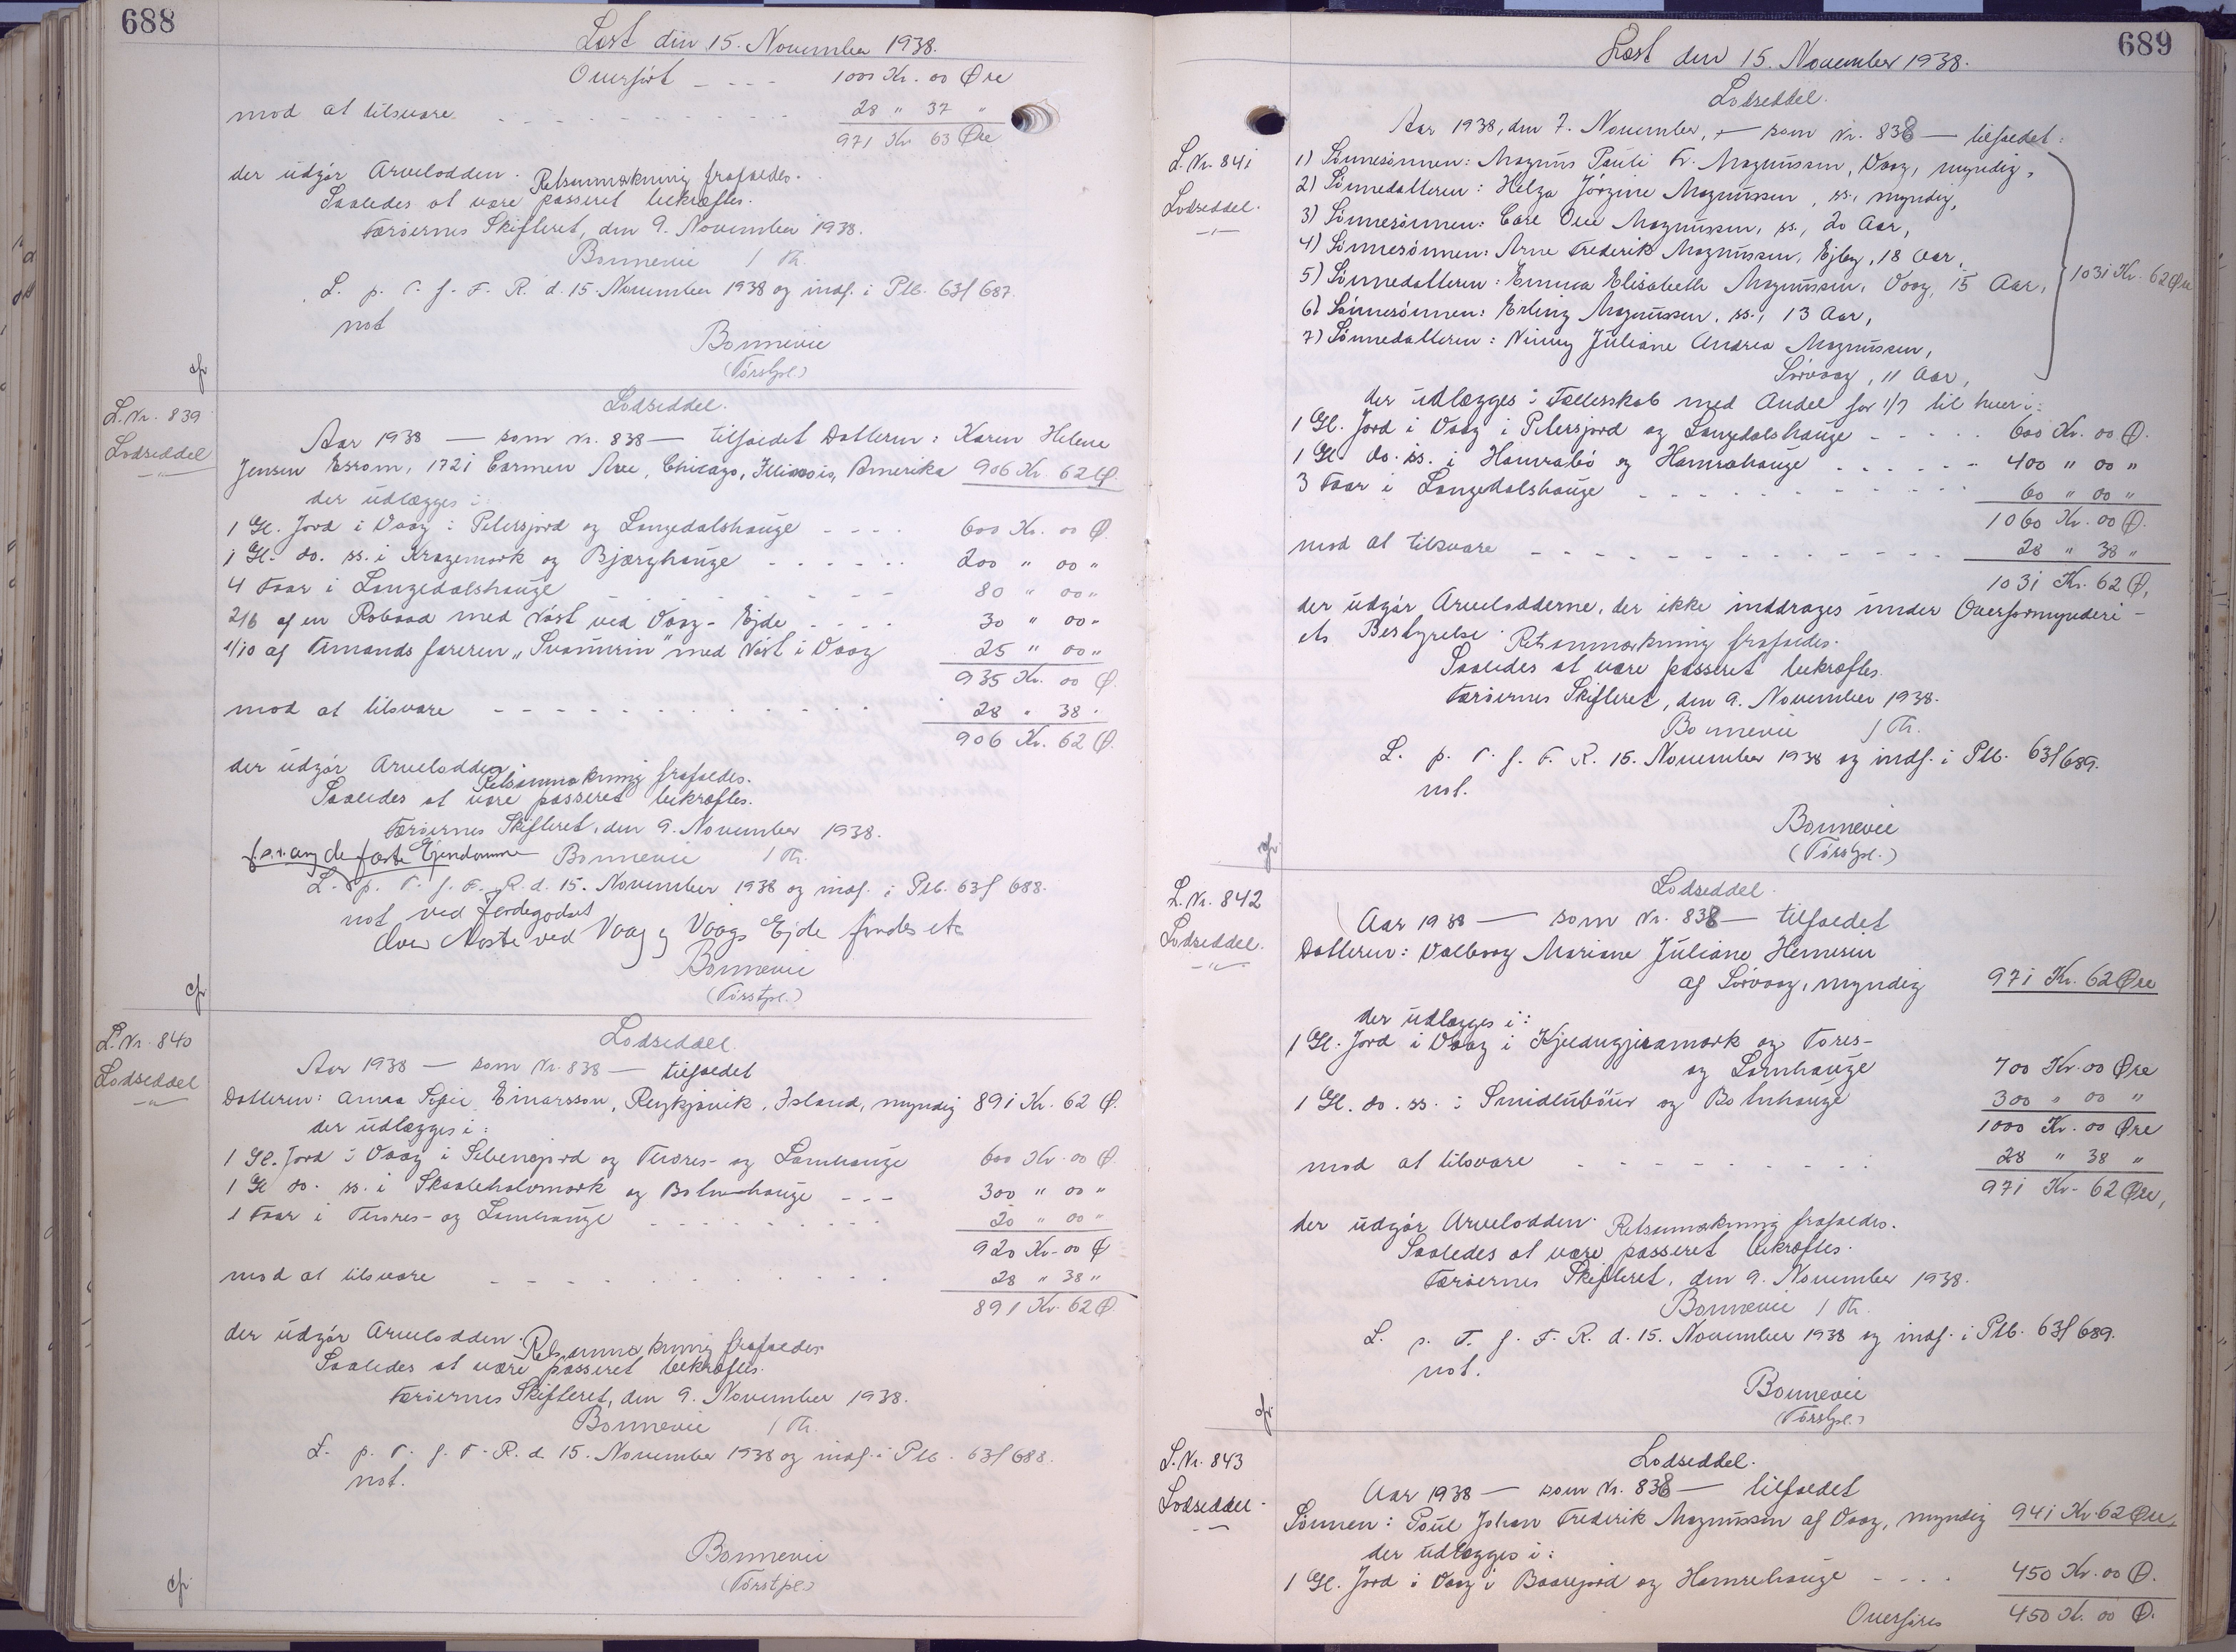 688
Læst den 15. November 1938.
Overført - - - 1000 Kr. 00 Øre
mod at tilsvare 28 " 37 "
971 Kr 63 Øre
der udgør Arvelodden. Retsanmærkning frafaldes.
Saaledes at være passeret bekræftes.
Færøernes Skifteret, den 9. November 1938.
Bonnevie / Th.
L. p. T. f. F. R. d. 15 November 1938 og indf. i Ptb. 63f 687.
not
Bonnevie
(Tórshpl.)
cfr
L. Nr. 839
Lodseddel
Lodseddel.
Aar 1938 — som Nr. 838 — tilfaldet Datteren: Karen Helene
Jensen Essom, 1721 Carmen Ave, Chicago, Illinois, Amerika 906 Kr. 62 Ø.
der udlægges i:
1 Gl. Jord i Vaag i Petersjord og Langedalshauge - - - - 600 Kr. 00 Ø.
1 Gl. do. ss. i Kragemark og Bjærghauge - - - - - - 200 " 00 "
4 Faar i Langedalshauge 80 " 00 "
2/6 af en Robaad med Nøst ved Vaag-Ejde - - - - 30 " 00 "
1/10 af Firmandsfareren "Svanurin" med Nøst i Vaag 25 " 00 "
935 Kr. 00 Ø.
mod at tilsvare 28 " 38 "
906 Kr. 62 Ø.
der udgør Arvelodden. Retsanmærkning frafaldes.
Saaledes at være passeret bekræftes.
Færøernes Skifteret, den 9. November 1938.
Bonnevie / Th.
f. s. v. ang de faste Ejendomme
L. p. T. f. F. R. d. 15. November 1938 og indf. i Ptb. 63f 688.
not ved Jordegodset
over Nøste ved Vaag og Vaags Ejde findes etc
Bonnevie
(Tórshpl.)
cfr
L. Nr. 840
Lodseddel
Lodseddel.
Aar 1938 — som Nr. 838 — tilfaldet
Datteren: Anna Sofie Einarsson, Reykjavik, Island, myndig 891 Kr. 62 Ø.
der udlægges i:
1 Gl. Jord i Vaag i Sebensjord og Tvøres- og Lamhauge 600 Kr. 00 Ø.
1 Gl do. ss. i Skaaleholmark og Botnhauge - - - 300 " 00 "
1 Faar i Tvøres- og Lamhauge 20 " 00 "
920 Kr. 00 Ø
mod at tilsvare 28 " 38 "
891 Kr. 62 Ø
der udgør Arvelodden. Retsanmærkning frafaldes
Saaledes at være passeret bekræftes.
Færøernes Skifteret, den 9. November 1938.
Bonnevie / Th.
L. p. T. f. F. R. d. 15. November 1938 og indf. i Ptb. 63f 688.
not.
Bonnevie
(Tórshpl.)
cfr.
689
Læst den 15. November 1938.
L. Nr. 841
Lodseddel.
Lodseddel.
Aar 1938, den 7. November, — som Nr. 838 — tilfaldet:
1) Sønnesønnen: Magnus Pauli Fr. Magnussen, Vaag, myndig,
2) Sønnedatteren: Helga Jórgine Magnussen, ss., myndig,
3) Sønnesønnen: Carl Ove Magnussen, ss., 20 Aar,
4) Sønnesønnen: Arne Frederik Magnussen, Ejby, 18 Aar,
5) Sønnedatteren: Emma Elisabeth Magnussen, Vaag, 15 Aar, 1031 Kr. 62 Øre
6) Sønnesønnen: Erling Magnussen, ss., 13 Aar,
7) Sønnedatteren: Ninny Juliane Andrea Magnussen,
Sørvaag, 11 Aar,
der udlægges i Fællesskab med Andel for 1/7 til hver i:
1 Gl. Jord i Vaag i Petersjord og Langedalshauge - - - - - 600 Kr. 00 Ø.
1 Gl do. ss. i Hamrabø og Hamrahauge - - - - - - 400 " 00 "
3 Faar i Langedalshauge 60 " 00 "
1060 Kr. 00 Ø.
mod at tilsvare 28 " 38 "
1031 Kr. 62 Ø,
der udgør Arvelodderne, der ikke inddrages under Overformynderi-
ets Bestyrelse. Retsanmærkning frafaldes.
Saaledes at være passeret bekræftes.
Færøernes Skifteret, den 9. November 1938.
Bonnevie / Th.
L. p. T. f. F. R. 15. November 1938 og indf. i Ptb. 63f 689.
not.
Bonnevie
(Tórshpl.)
cfr
L. Nr. 842
Lodseddel.
Lodseddel.
Aar 1938 — som Nr. 838 — tilfaldet
Datteren: Valborg Mariane Juliane Hennesen
af Sørvaag, myndig 971 Kr. 62 Øre
der udlægges i:
1 Gl. Jord i Vaag i Kjerdugjeramark og Tøres-
og Lamhauge 700 Kr. 00 Øre
1 Gl. do. ss. i Smidlubøur og Botnhauge 300 " 00 "
1000 Kr. 00 Øre
mod at tilsvare 28 " 38 "
971 Kr. 62 Øre,
der udgør Arvelodden. Retsanmærkning frafaldes.
Saaledes at være passeret bekræftes.
Færøernes Skifteret, den 9. November 1938.
Bonnevie / Th.
L. p. T. f. F. R. d. 15. November 1938 og indf. i Ptb. 63f 689.
not.
Bonnevie
(Tórshpl.)
cfr.
L. Nr. 843
Lodseddel.
Lodseddel.
Aar 1938 — som Nr. 838 — tilfaldet
Sønnen: Poul Johan Frederik Magnussen af Vaag, myndig 941 Kr. 62 Øre,
der udlægges i:
1 Gl. Jord i Vaag i Baarejord og Hamrehauge - - - - 450 Kr. 00 Ø.
Overføres 450 Kr. 00 Ø.